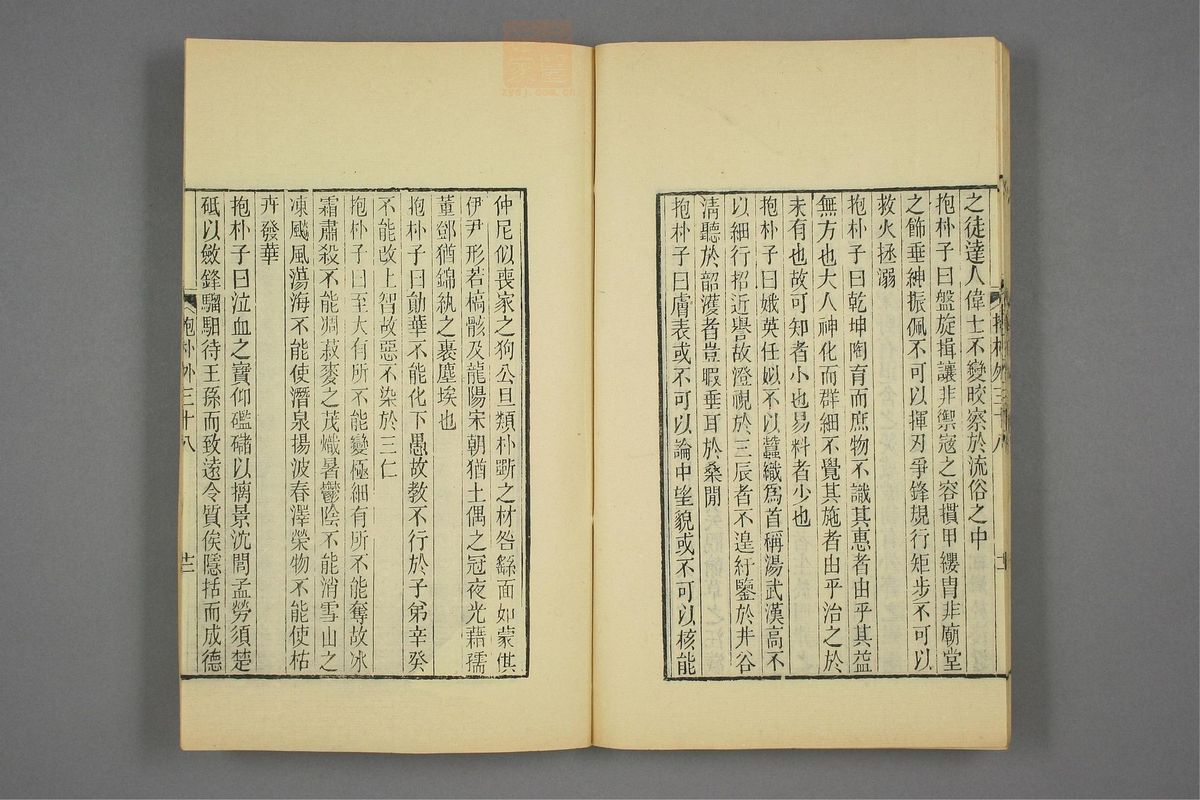 之徒達人偉士不變晈察於流俗之中
抱朴子曰盤旋揖讓非禦寇之容摜甲纓冑非廟堂
之飾垂紳振佩不可以揮刃爭鋒規行矩步不可以
救火拯溺
抱朴子曰乾坤陶育而庶物不識其惠者由乎其益
無方也大人神化而群細不覺其施者由乎治之於
未有也故可知者小也易料者少也
抱朴子曰娥英任姒不以蠶織爲首稱湯武漢高不
以細行招近譽故澄視於三辰者不遑紆鑒於井谷
清聽於韶濩者豈暇垂耳於桑閒
抱朴子曰膚表或不可以論中望貌或不可以核能
抱朴外三十八
仲尼似喪家之狗公旦類朴斲之材咎繇面如蒙倛
伊尹形若槁骸及龍陽宋朝猶土偶之冠夜光藉孺
董鄧猶錦紈之裹塵埃也
抱朴子曰勛華不能化下愚故教不行於子弟辛癸
不能改上智故惡不染於三仁
抱朴子曰至大有所不能變極細有所不能奪故冰
霜肅殺不能凋菽麥之茂熾暑鬱陰不能消雪山之
凍飈風蕩海不能使潛泉揚波春澤榮物不能使枯
卉發華
抱朴子曰泣血之寶仰礛䃴以摛景沈閭孟勞須楚
砥以斂鋒騮駬待王孫而致遠令質俟隱括而成德
抱朴外三十八
廿二